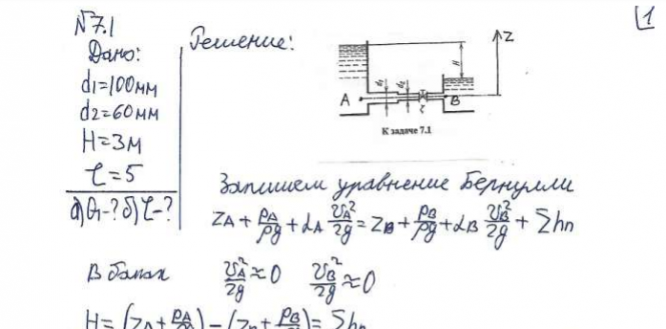 1
№7.1
Дано:
d1=100мм
d2=60мм
H=3м
ζ=5
а) Q-? б) ζ-?
Решение:
Z
H
d1
d2
A
B
ζ
К задаче 7.1
Запишем уравнение Бернулли
ZA + PA/ρg + αA VA²/2g = ZB + PB/ρg + αB VB²/2g + Σhп
В баках VA²/2g ≈ 0 VB²/2g ≈ 0
H = (ZA + PA/ρg) - (ZB + PB/ρg) = Σhп